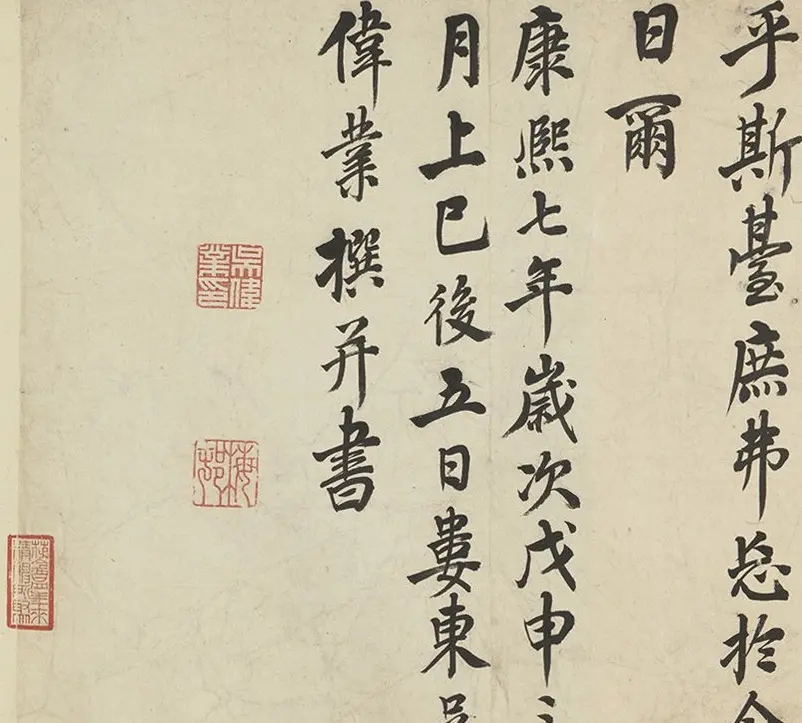 乎斯臺庶弗忘於今
日爾
康熙七年歲次戊申三
月上巳後五日婁東吳
偉業撰并書
吳偉業印
梅村